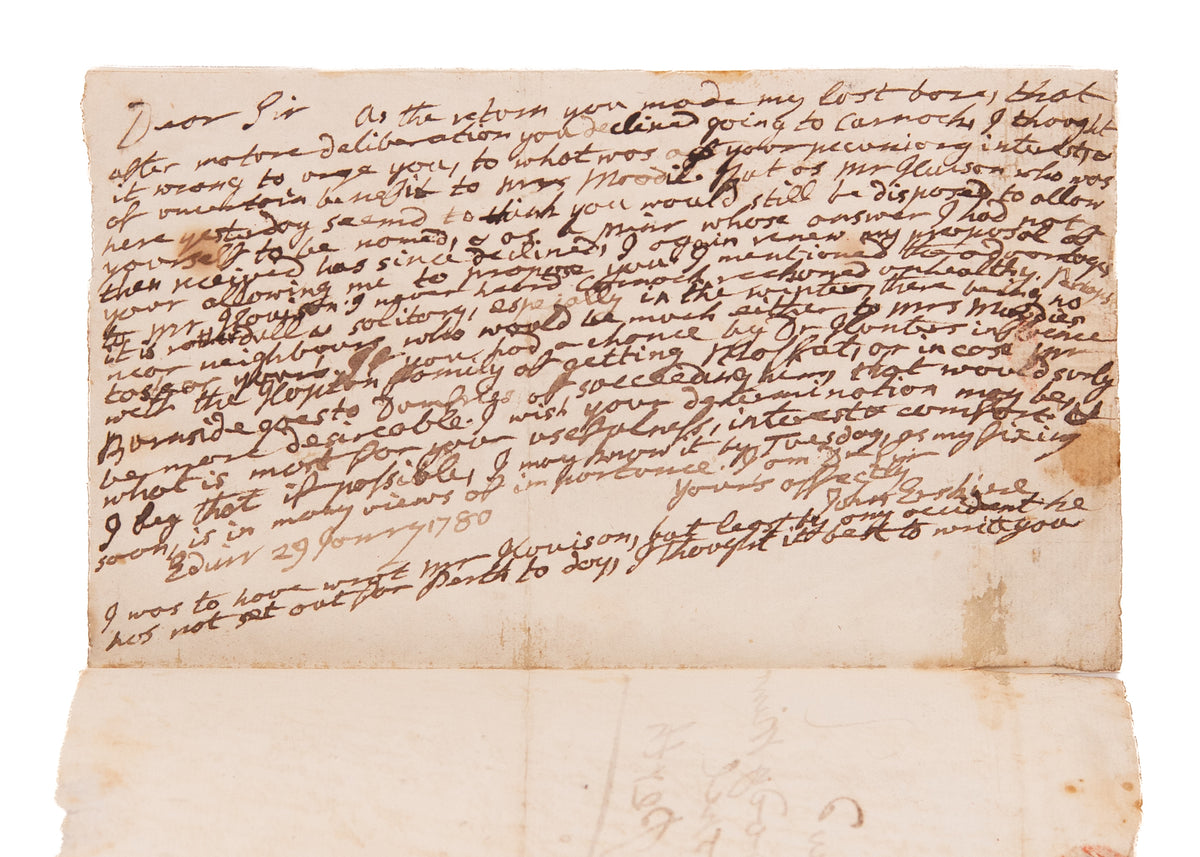 Dear Sir As the return you made my last bore, that
after mature deliberation you declined going to Carnock, I thought
it wrong to urge you, to what was agt your pecuniary interest &
of uncertain benefit to Mrs Moodie. But as Mr who was
here yesterday seemd to think you would still be disposed to allow
yourself to be named, & as a Minr whose answer I had not
then received has since declined, I again renew my proposal of
your allowing me to propose you. I mentioned the advantages
to Mr I never heard Carnock reckoned unhealthy. Perhaps
it is rather dull & solitary, especially in the winter, there being no
near neighbours who would be much either to Mrs Moodies
taste or yours. If you had a chance by Dr Hunters influence
with the Hopton family of getting Moffat, or in case Mr
Burnside goes to Dumfries of succeeding him, that would surly
be more desireable. I wish your determination may be,
what is most for your usefulness, interest & comfort. &
I beg that if possible, I may know it by Tuesday, as my fixing
soon, is in many views of importance. I am Dr Sir
yours affectly
John Erskine
Edinr 29 Janry 1780
I was to have wrot Mr but least by any accident he
has not set out for Perth to day, I thought it best to write you